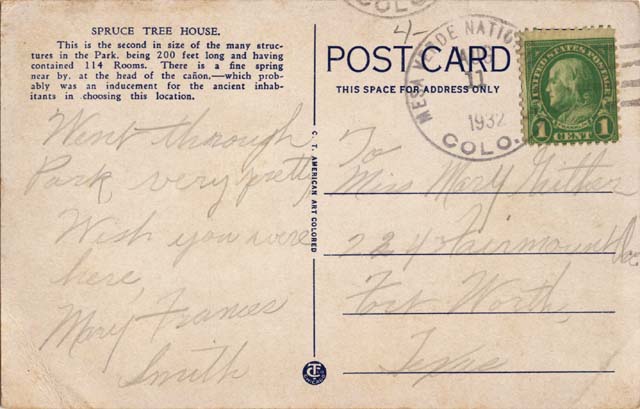 SPRUCE TREE HOUSE.
This is the second in size of the many struc-
tures in the Park, being 200 feet long and having
contained 114 Rooms. There is a fine spring
near by, at the head of the cañon,—which prob-
ably was an inducement for the ancient inhab-
itants in choosing this location.
Went through
Park, very pretty,
Wish you were
here,
Mary Frances
Smith
C. T. AMERICAN ART COLORED
4-
POST CARD
THIS SPACE FOR ADDRESS ONLY
COLO.
MESA VERDE NATIO
11
1932
COLO.
UNITED STATES POSTAGE
1 CENT 1
To
Miss Mary
224 Fairmount
Fort Worth,
Texas
CHICAGO